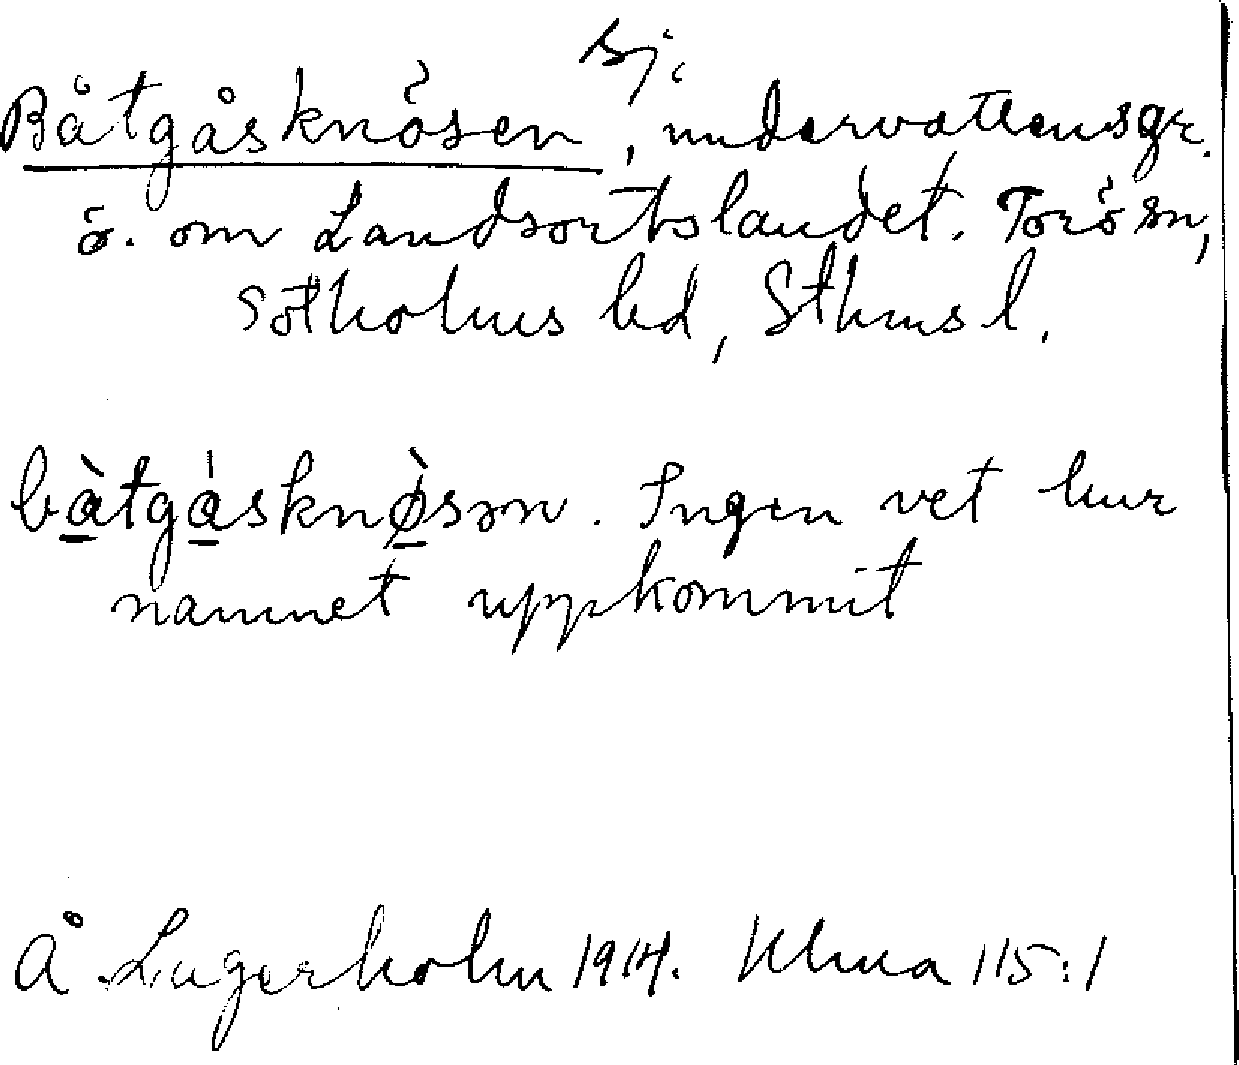 sj.
Båtgåsknösen, undervattensgr.
ö. om Landsortslandet. Torö sn,
Sotholms hd, Sthms l.
bàtgásknø̀sən. Ingen vet hur
namnet uppkommit
Å Lagerholm 1914. Ulma 115:1